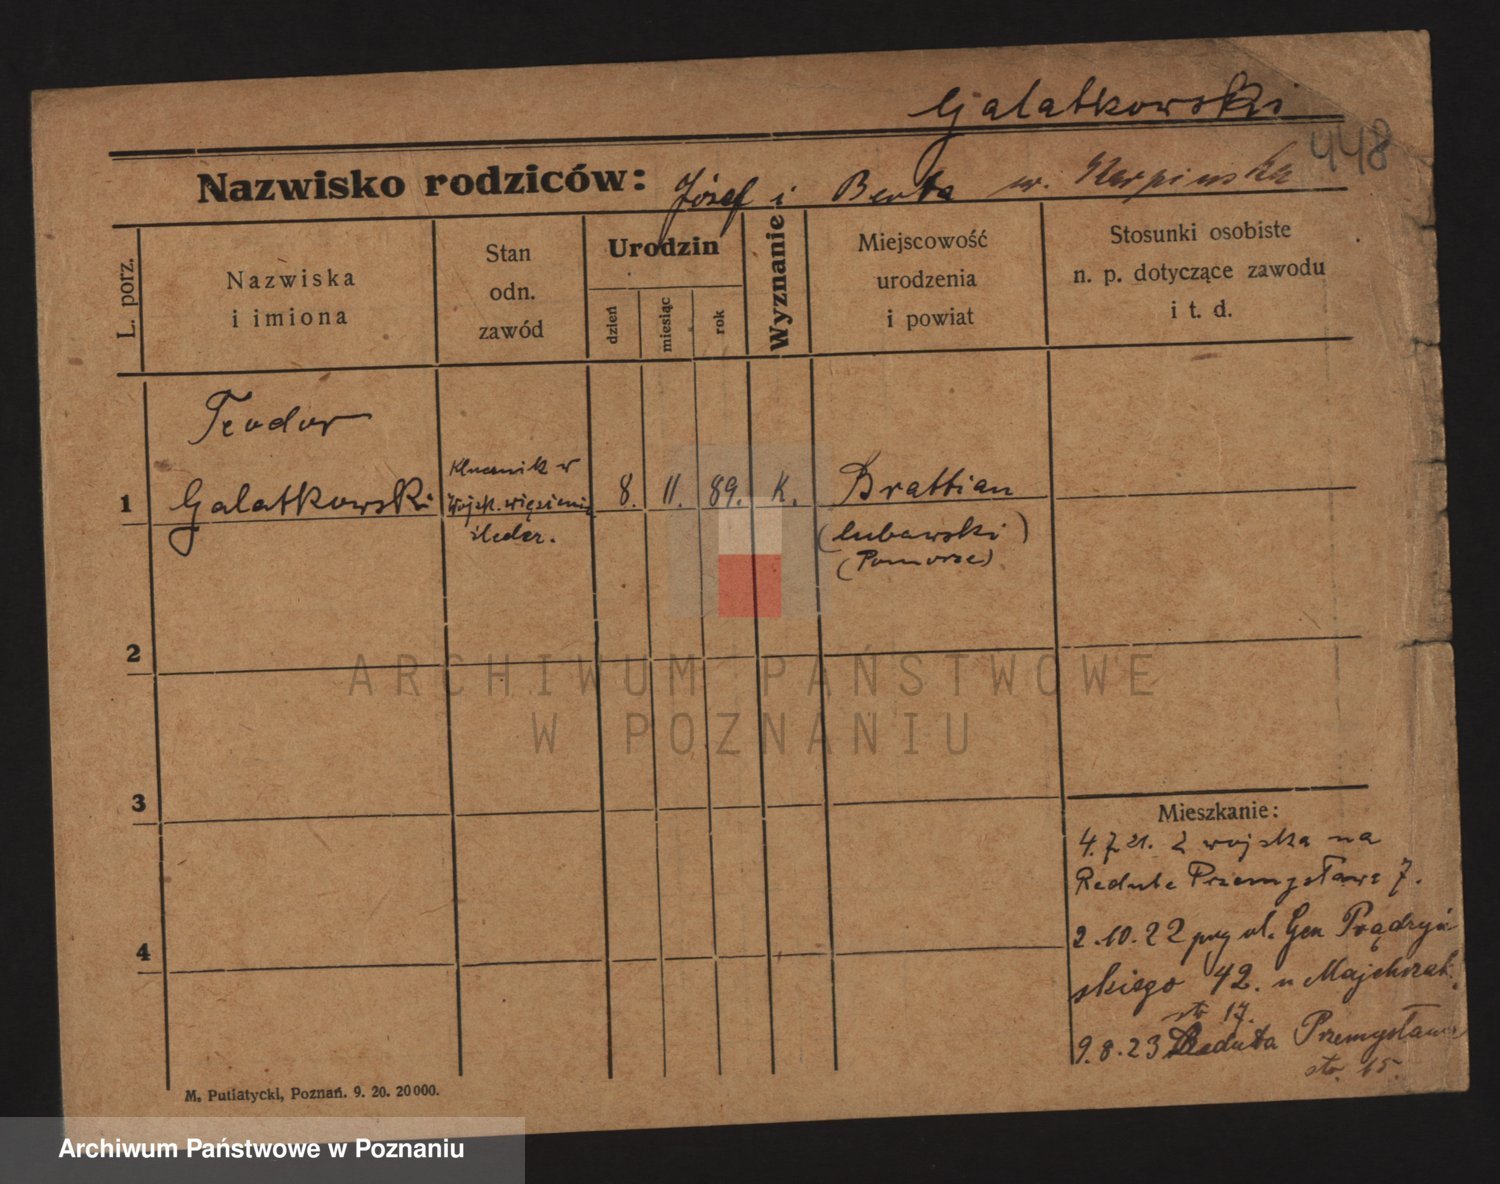 Galatkowski
448
Nazwisko rodziców: Józef i Berta
L. porz.
Nazwiska
i imiona
Stan
odn.
zawód
Urodzin
dzień
miesiąc
rok
Wyznanie
Miejscowość
urodzenia
i powiat
Stosunki osobiste
n. p. dotyczące zawodu
i t. d.
Teodor
1 Galatkowski
w
Wojsk. więzieniu
śledcz.
8. 11. 89. K. Brattian
(lubawski)
(Pomorze)
2
3
4
ARCHIWUM PAŃSTWOWE
W POZNANIU
Mieszkanie:
4.7.21. z wojska na
Reduta Przemysława 7.
2.10.22 przy ul. Gen Prądzyń
skiego 42. u
str 17.
9.8.23 Reduta Przemysława
str. 15.
M. Putiatycki, Poznań. 9. 20. 20000.
Archiwum Państwowe w Poznaniu